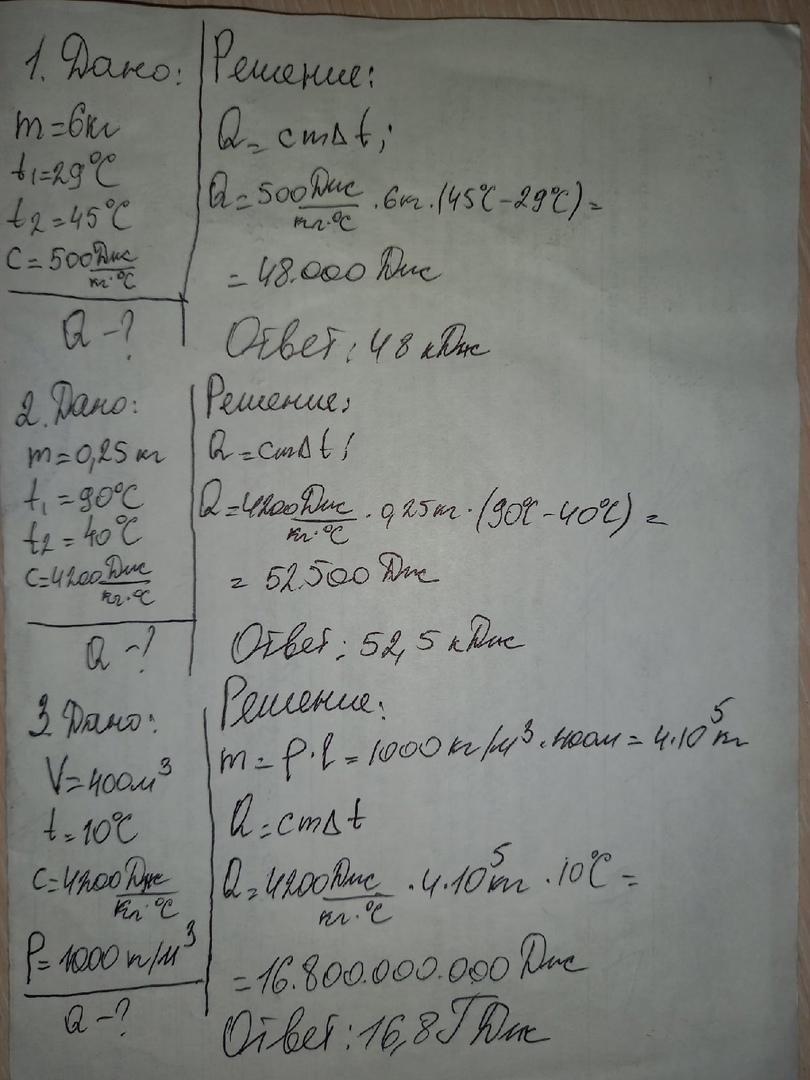 1. Дано:
m=6кг
t₁=29°C
t₂=45°C
C=500 Дж/кг·°C
Q-?
Решение:
Q=cmΔt;
Q=500 Дж/кг·°C · 6кг · (45°C-29°C)=
=48.000 Дж
Ответ: 48 кДж
2. Дано:
m=0,25 кг
t₁=90°C
t₂=40°C
C=4200 Дж/кг·°C
Q-?
Решение:
Q=cmΔt;
Q=4200 Дж/кг·°C · 0,25кг · (90°C-40°C)=
=52.500 Дж
Ответ: 52,5 кДж
3. Дано:
V=400м³
t=10°C
C=4200 Дж/кг·°C
ρ=1000 кг/м³
Q-?
Решение:
m=ρ·l=1000 кг/м³·400м=4·10⁵кг
Q=cmΔt
Q=4200 Дж/кг·°C · 4·10⁵кг · 10°C=
=16.800.000.000 Дж
Ответ: 16,8 ГДж